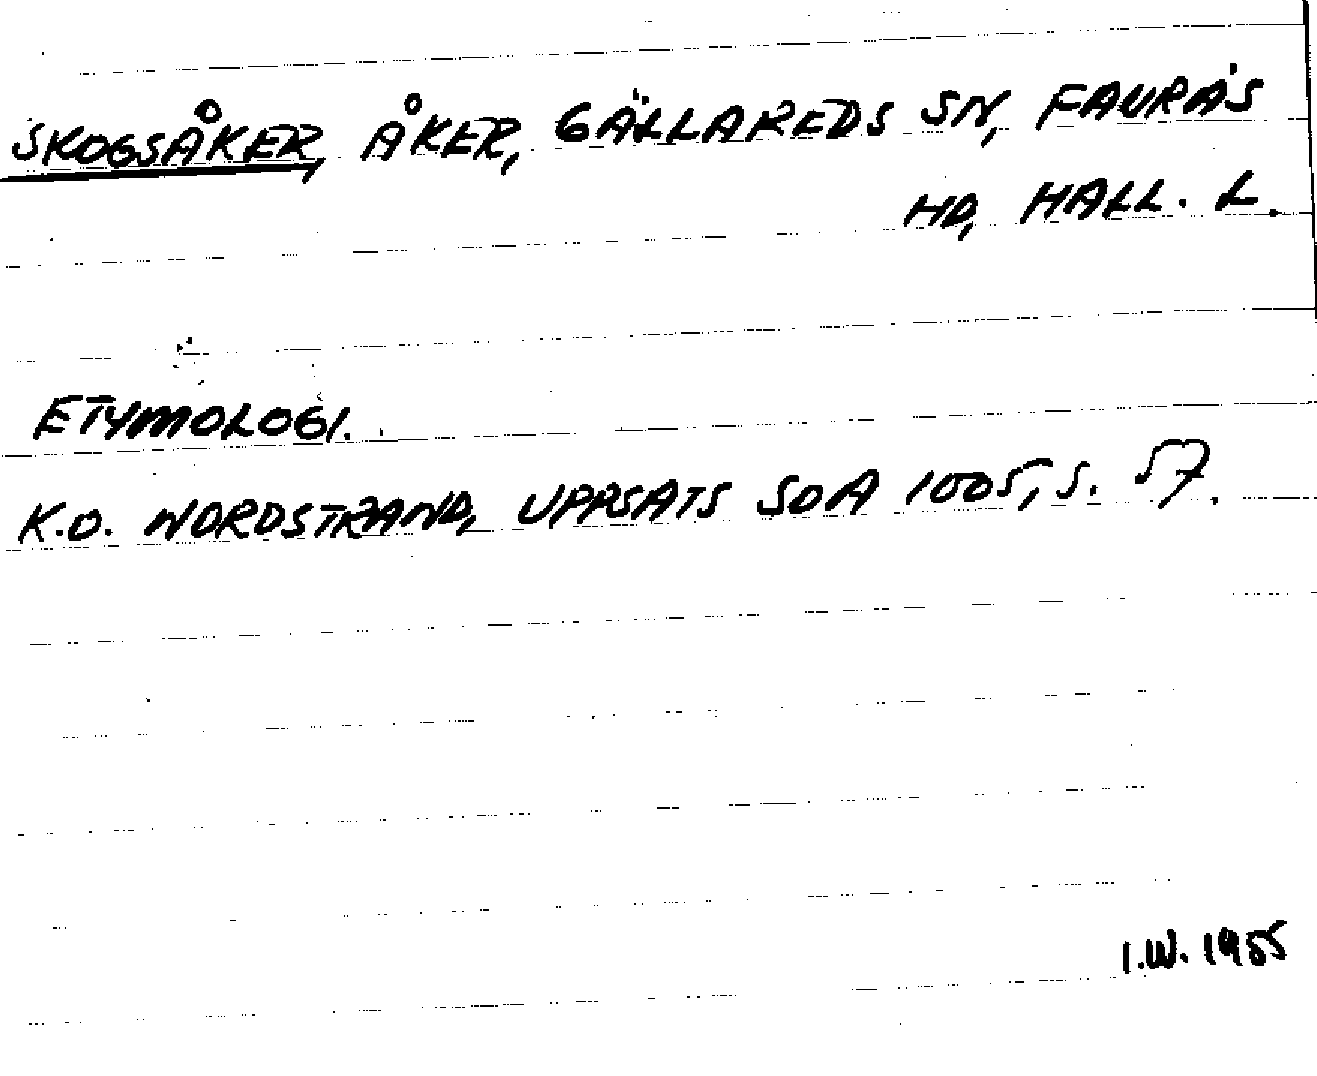 SKOGSÅKER, ÅKER, GÄLLAREDS SN, FAURÅS
HD, HALL. L.
ETYMOLOGI.
K.O. NORDSTRAND, UPPSATS SOA 1005, S. 57.
I.W. 1955